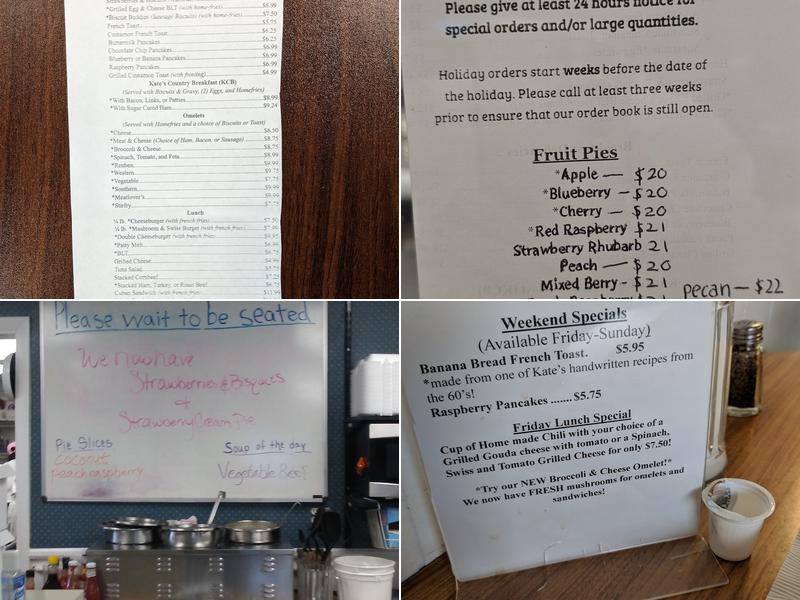 *Grilled Egg & Cheese BLT (with home-fries) $8.99
*Biscuit Buddies (Sausage Biscuits) (with home-fries) $7.50
French Toast $5.75
Cinnamon French Toast $6.25
Buttermilk Pancakes $6.25
Chocolate Chip Pancakes $6.99
Blueberry or Banana Pancakes $6.99
Raspberry Pancakes $6.99
Grilled Cinnamon Toast (with frosting) $4.99
Kate's Country Breakfast (KCB)
(Served with Biscuits & Gravy, (2) Eggs, and Homefries)
*With Bacon, Links, or Patties $8.99
*With Sugar Cured Ham $9.24
Omelets
(Served with Homefries and a choice of Biscuits or Toast)
*Cheese $6.50
*Meat & Cheese (Choice of Ham, Bacon, or Sausage) $8.75
*Broccoli & Cheese $8.75
*Spinach, Tomato, and Feta $8.99
*Reuben $9.99
*Western $9.75
*Vegetable $7.75
*Southern $9.99
*Meatlover's $9.99
*Stirfry
Lunch
¼ lb. *Cheeseburger (with french fries) $7.50
¼ lb. *Mushroom & Swiss Burger (with french fries) $7.99
*Double Cheeseburger (with french fries) $9.95
*Patty Melt $6.99
*BLT $6.75
Grilled Cheese $4.99
Tuna Salad $5.75
Stacked Corned Beef $7.25
*Stacked Ham, Turkey, or Roast Beef $6.75
Cuban Sandwich (with french fries) $11.99
Please give at least 24 hours notice for
special orders and/or large quantities.
Holiday orders start weeks before the date of
the holiday. Please call at least three weeks
prior to ensure that our order book is still open.
Fruit Pies
*Apple — $20
*Blueberry — $20
*Cherry — $20
*Red Raspberry $21
Strawberry Rhubarb 21
Peach — $20
Mixed Berry - $21
Pecan — $22
Please wait to be seated
We now have
Strawberries & Bisquits
+
Strawberry Cream Pie
Pie Slices
Coconut
Peach raspberry
Soup of the day
Vegetable Beef
Weekend Specials
(Available Friday-Sunday)
Banana Bread French Toast. $5.95
*made from one of Kate's handwritten recipes from
the 60's!
Raspberry Pancakes .......$5.75
Friday Lunch Special
Cup of Home made Chili with your choice of a
Grilled Gouda cheese with tomato or a Spinach,
Swiss and Tomato Grilled Cheese for only $7.50!
*Try our NEW Broccoli & Cheese Omelet!*
We now have FRESH mushrooms for omelets and
sandwiches!